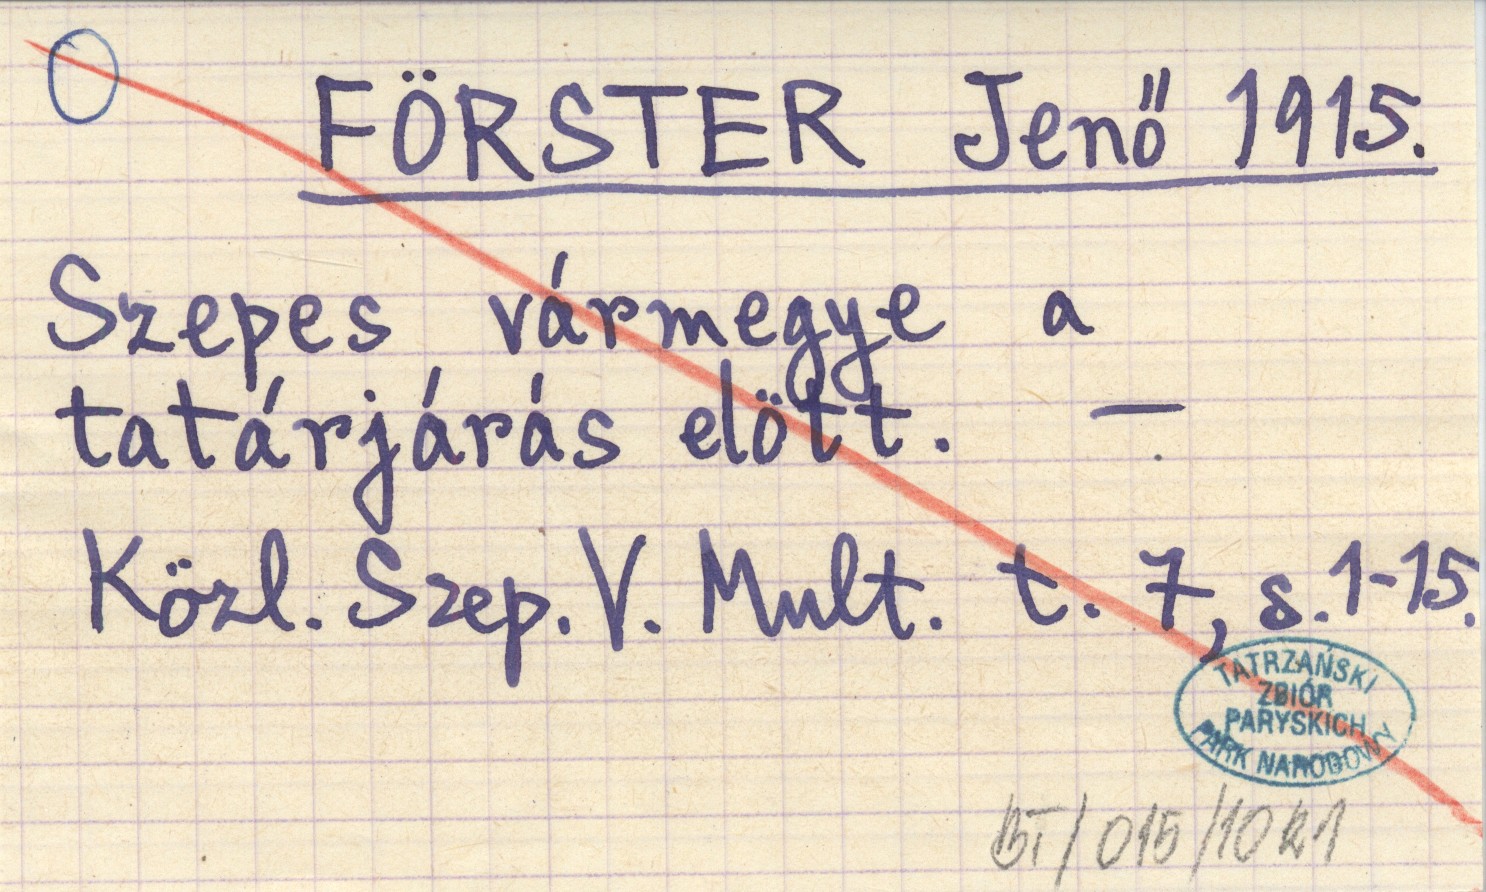 FÖRSTER Jenő 1915.
Szepes vármegye a
tatárjárás elött. —
Közl. Szep. V. Mult. t. 7, s. 1-15.
TATRZAŃSKI
ZBIÓR
PARYSKICH
PARK NARODOWY
BT/015/1021